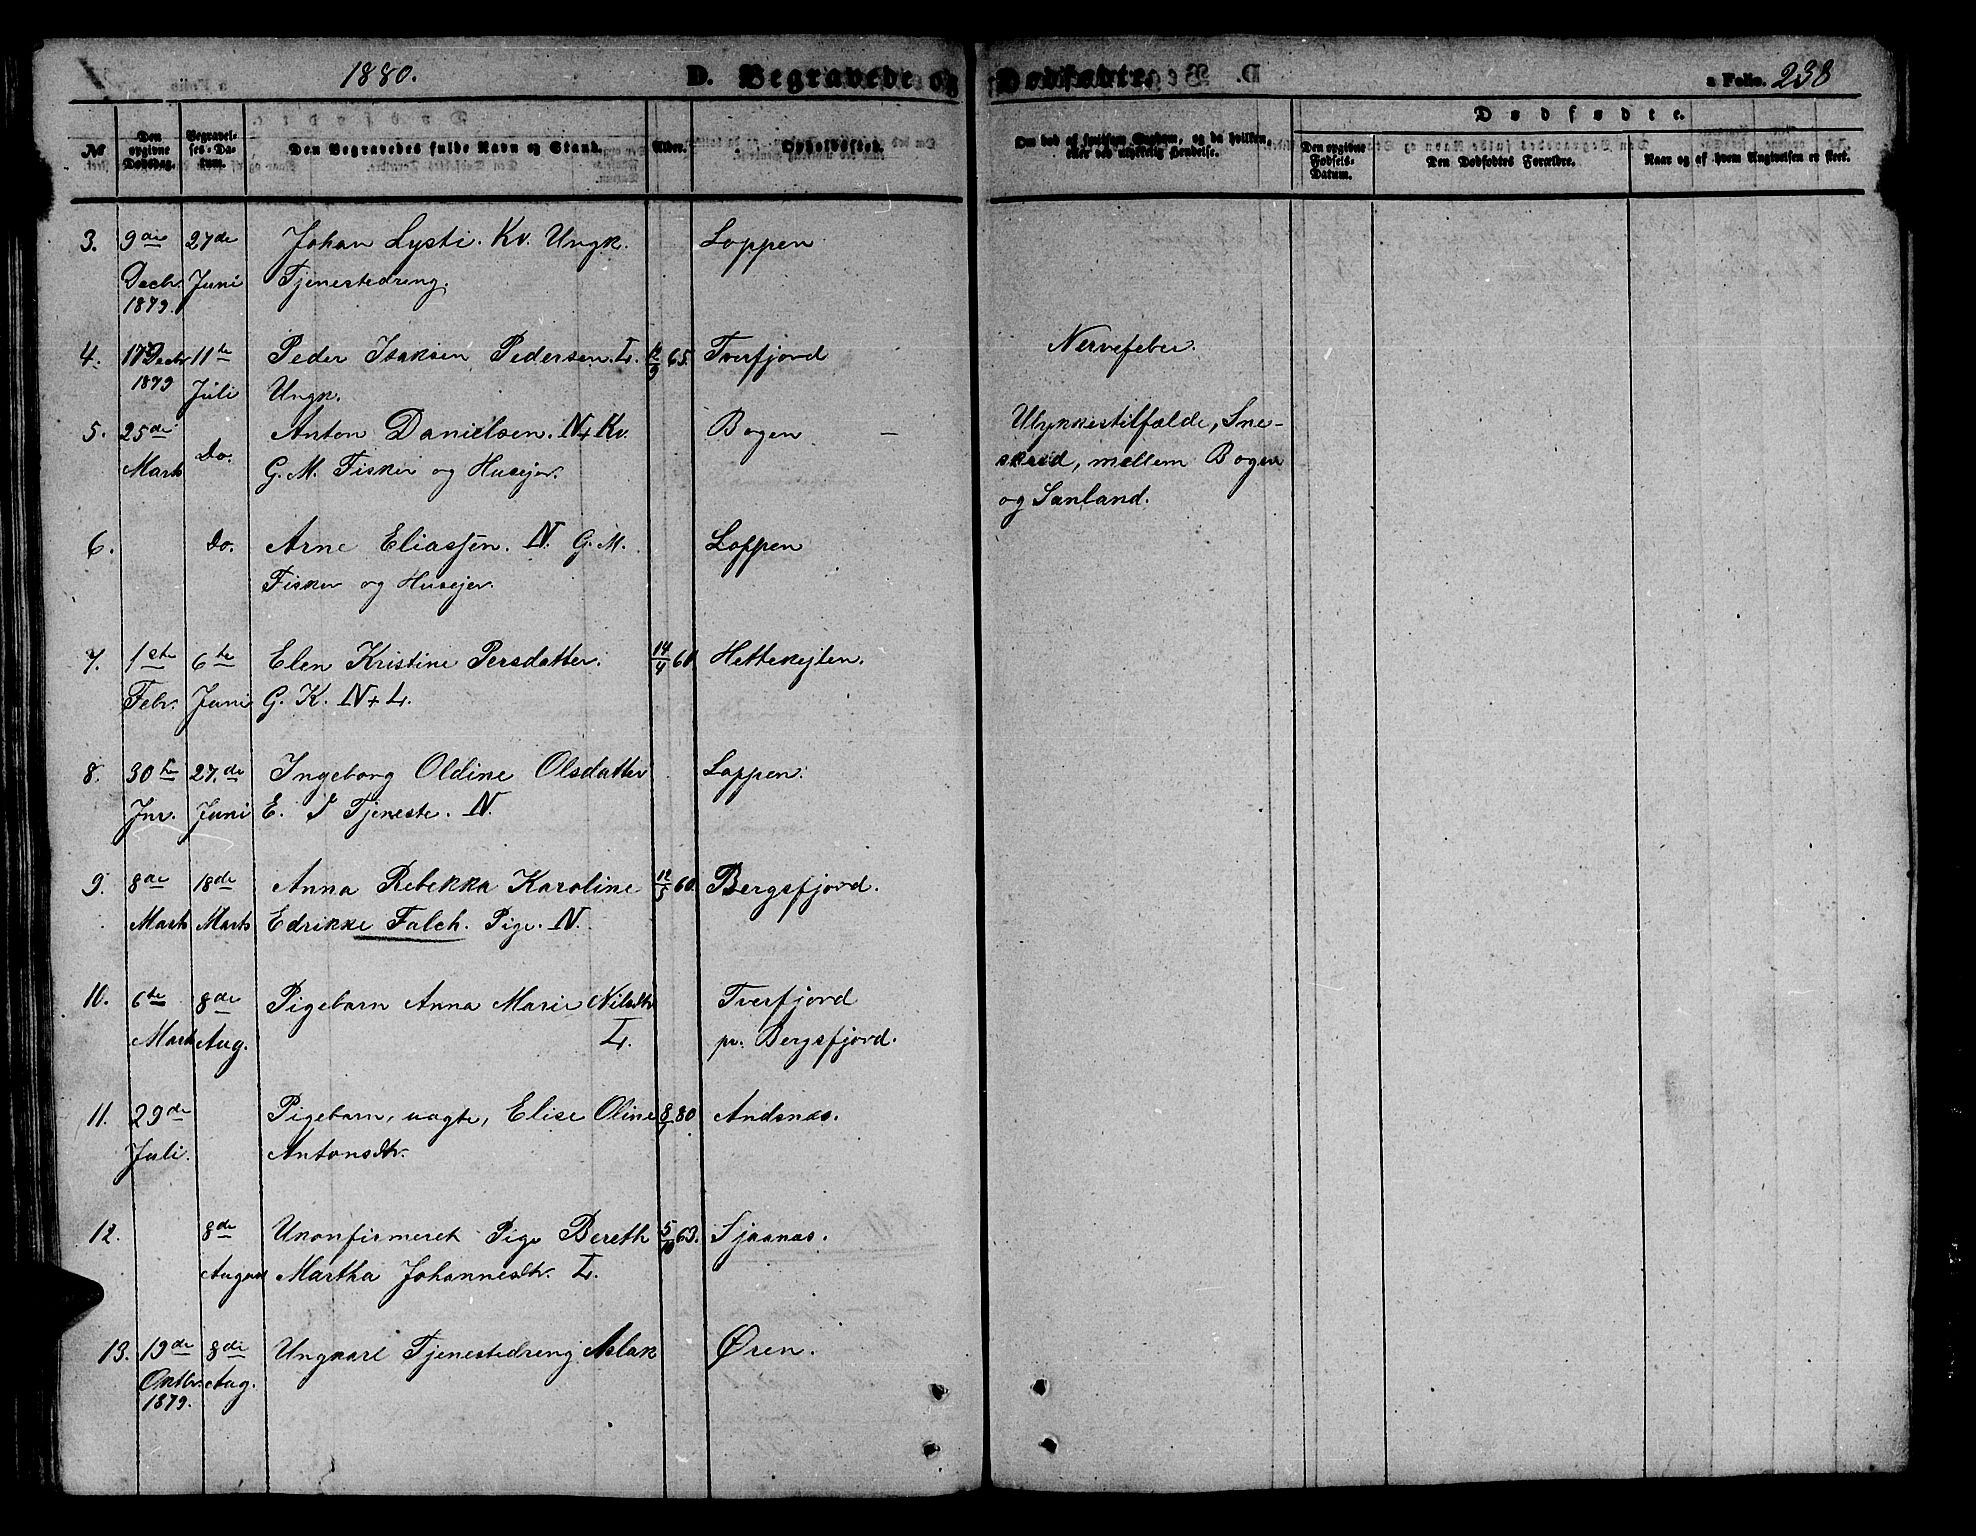 1880. D. Begravede og Dødfødte. a Folio. 238
No
Den opgivne Dødsdag.
Begravelses-Datum.
Den Begravedes fulde Navn og Stand.
Alder.
Opholdssted.
Om død af smitsom Sygdom, og da hvilken, eller ved ulykkelig Hendelse.
Dødfødte.
Den opgivne Fødsels-Datum.
Den Dødfødtes Forældre.
Naar og af hvem Angivelsen er skeet.
3. 9de 27de Johan Lysti. Kv. Ungk. Loppen
Decbr. Juni Tjenestedreng.
1879.
4. Decbr 11te Peder Isaksen Pedersen. L. 65. Tverfjord Nervefeber.
1879 Juli Ungk.
5. 25de Do. Anton Danielsen. N+Kv. Bogen - Ulykkestilfælde, Sne-
Marts G.M. Fisker og Husejer. skred, mellem Bogen
og Sanland.
6. Do. Arne Eliassen. N. G.M. Loppen
Fisker og Husejer.
7. 1ste 6te Elen Kristine Persdatter. 14/4 61. Hettekejlen.
Febr. Juni G. K. N+L.
8. 30te 27.de Ingeborg Oldine Olsdatter Loppen.
Jnr. Juni E. I Tjeneste. N.
9. 8de 18de Anna Rebekka Karoline 12/5 60. Bergsfjord.
Marts Marts Edrikke Falch. Pige. N.
10. 6te 8de Pigebarn Anna Marie Nilsdtr Tverfjord
Marts Aug. L. pr. Bergsfjord.
11. 29de Pigebarn, uægte, Elise Oline 80 Andsnæs.
Juli. Antonsdtr.
12. 8de Ukonfirmeret Pige Bereth 5/10 63. Sjaanæs.
August Martha Johannesdtr. L.
13. 19de 8de Ungkarl Tjenestedreng Aslak Øren.
Oktbr. Aug.
1879.